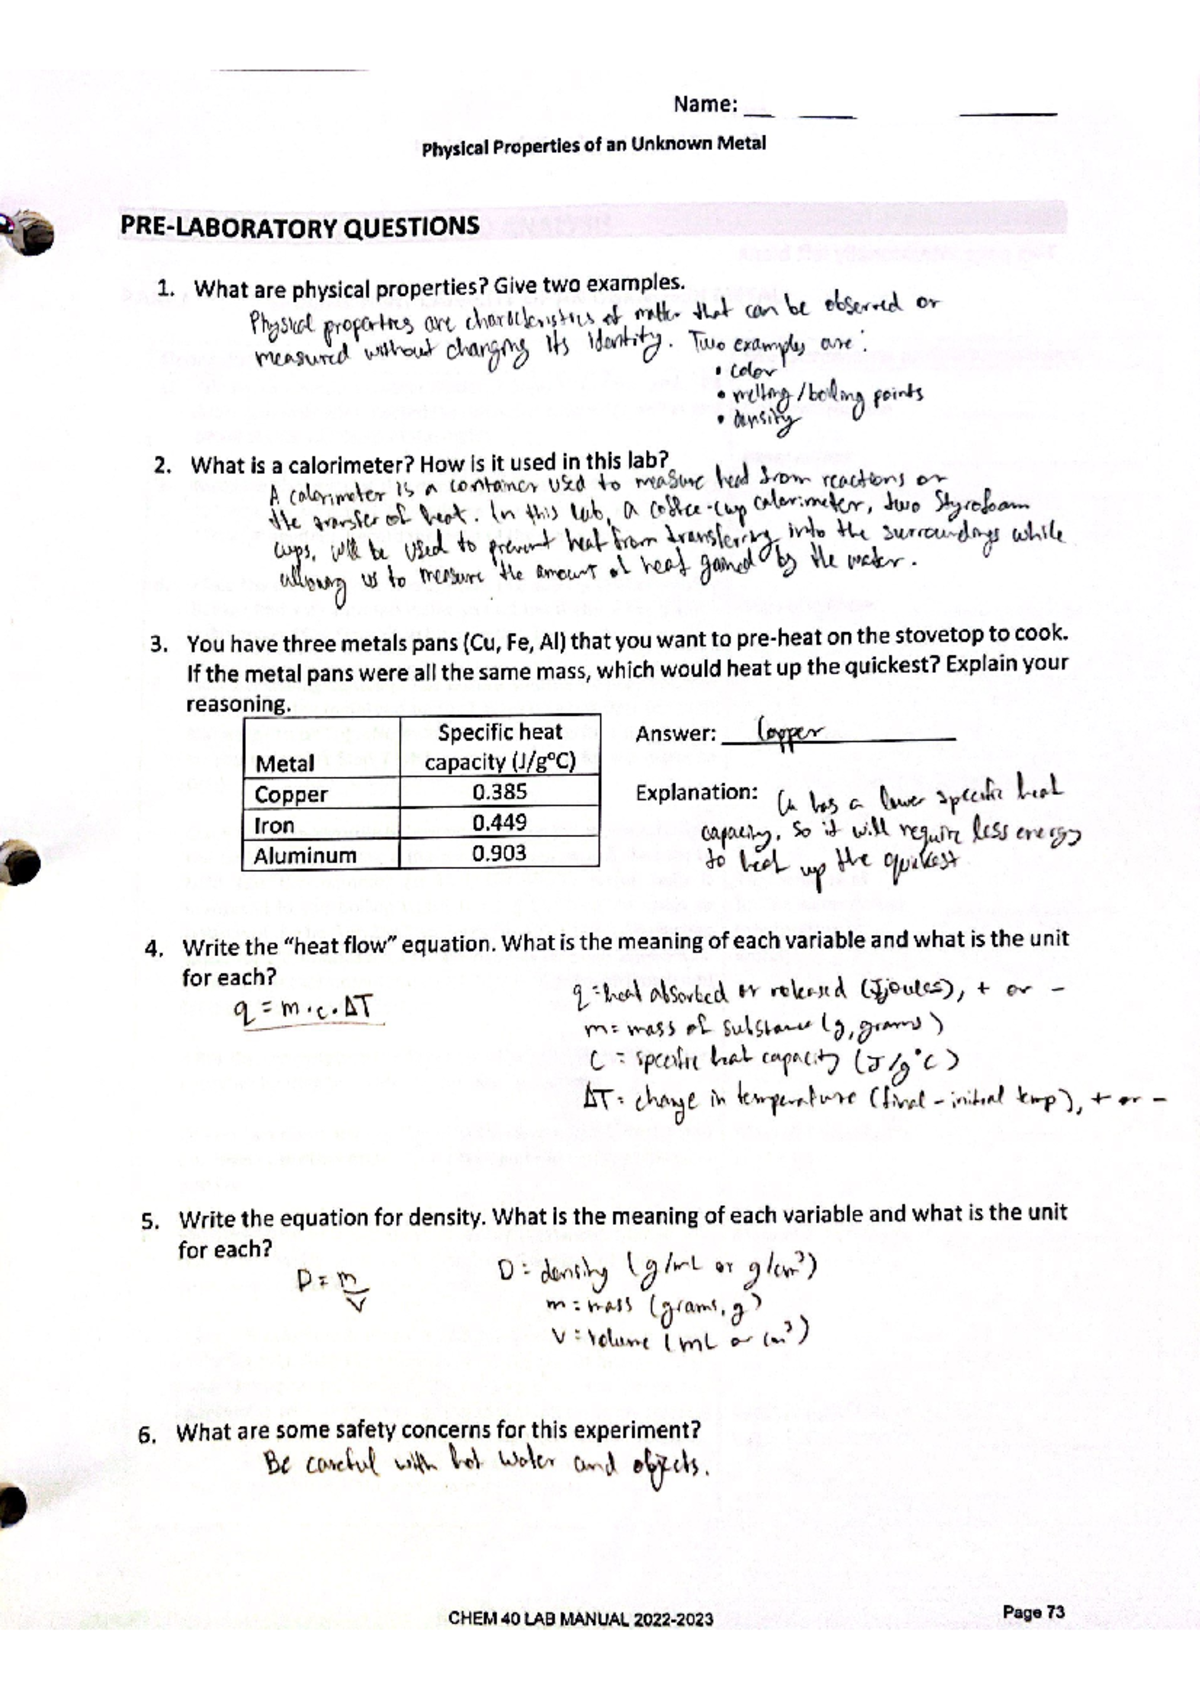 Name:
Physical Properties of an Unknown Metal
PRE-LABORATORY QUESTIONS
1. What are physical properties? Give two examples.
Physical properties are characteristics of matter that can be observed or
measured without changing its identity. Two examples are:
• color
• melting/boiling points
• density
2. What is a calorimeter? How is it used in this lab?
A calorimeter is a container used to measure heat from reactions or
the transfer of heat. In this lab, a coffee-cup calorimeter, two Styrofoam
cups, will be used to prevent heat from transferring into the surroundings while
allowing us to measure the amount of heat gained by the water.
3. You have three metals pans (Cu, Fe, Al) that you want to pre-heat on the stovetop to cook.
If the metal pans were all the same mass, which would heat up the quickest? Explain your
reasoning.
Metal Specific heat capacity (J/g°C)
Copper 0.385
Iron 0.449
Aluminum 0.903
Answer: Copper
Explanation: Cu has a lower specific heat
capacity, so it will require less energy
to heat up the quickest
4. Write the “heat flow” equation. What is the meaning of each variable and what is the unit
for each?
q = m·c·ΔT
q = heat absorbed or released (J, joules), + or -
m = mass of substance (g, grams)
C = specific heat capacity (J/g°C)
ΔT = change in temperature (final - initial temp), + or -
5. Write the equation for density. What is the meaning of each variable and what is the unit
for each?
D = m/V
D = density (g/mL or g/cm³)
m = mass (grams, g)
V = volume (mL or cm³)
6. What are some safety concerns for this experiment?
Be careful with hot water and objects.
CHEM 40 LAB MANUAL 2022-2023
Page 73